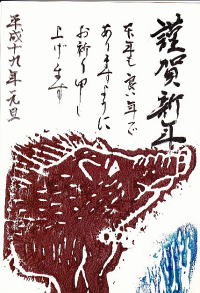 謹賀新年
本年も良い年で
ありますように
お祈り申し
上げます
平成十九年 元旦